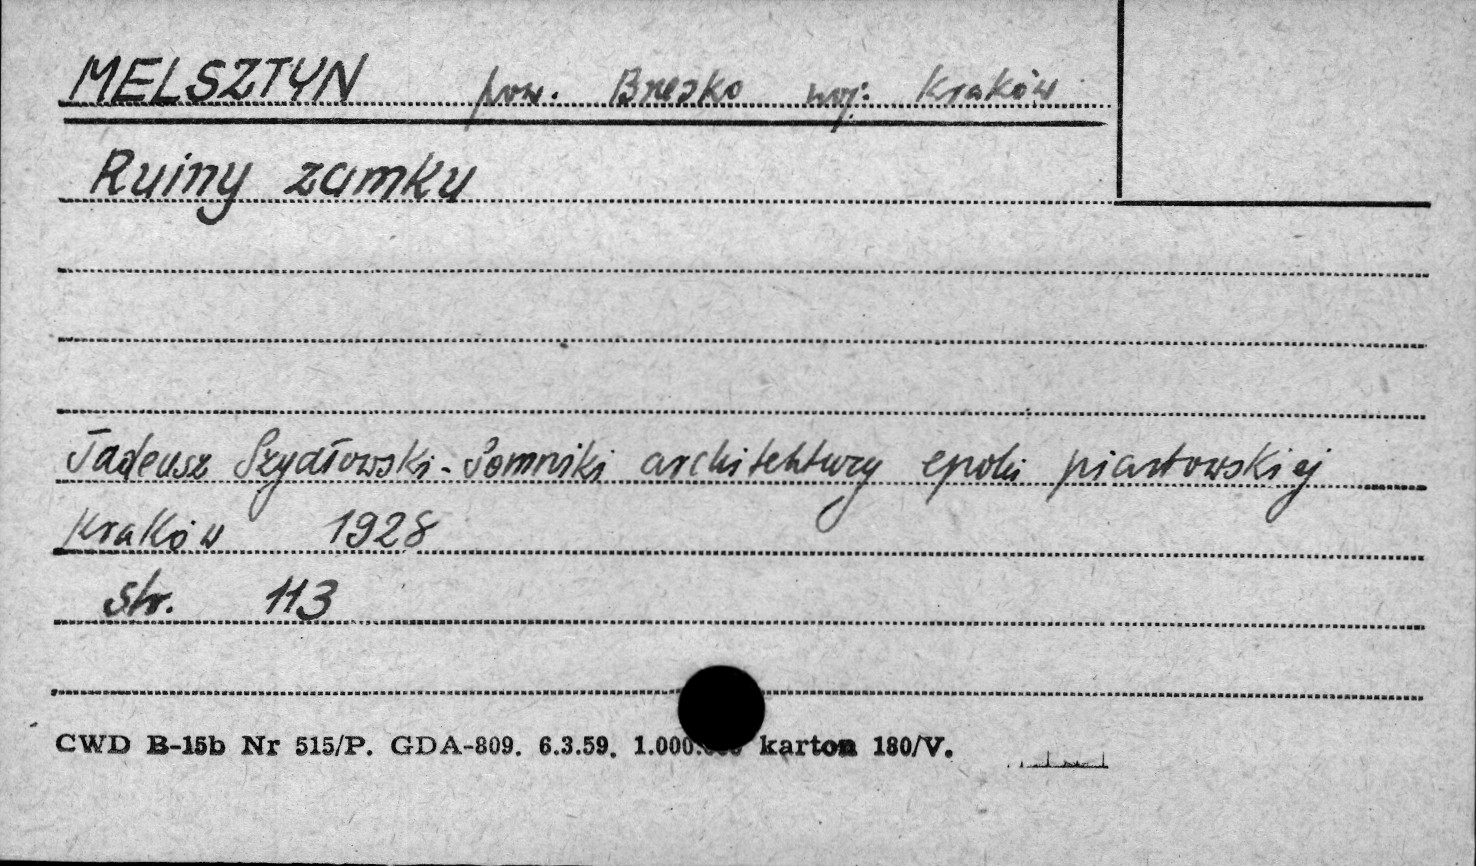 MELSZTYN pow. Brzesko woj: Kraków
Ruiny zamku
Tadeusz Szydłowski - Pomniki architektury epoki piastowskiej
Kraków 1928
str. 113
CWD B-15b Nr 515/P. GDA-809. 6.3.59. karton 180/V.